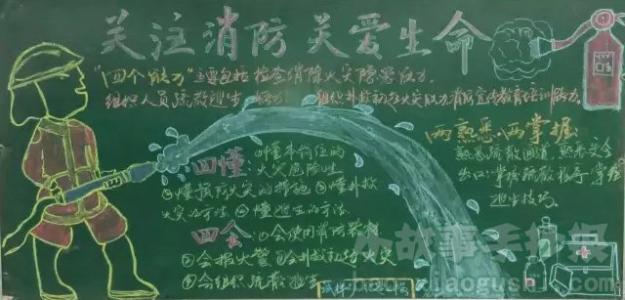 关注消防 关爱生命
"四个能力"主要包括检查消除火灾隐患能力.
组织人员疏散逃生能力 组织扑救初起火灾能力消防宣传教育培训能力
两熟悉两掌握
熟悉疏散通道,熟悉安全
出口掌握疏散程序,掌握
逃生技巧
四懂 ①懂本岗位的
火灾危险性
②懂预防火灾的措施 ③懂扑救
火灾的方法 ④懂逃生的方法
四会 ①会使用消防器材
②会报火警 ③会扑救初起火灾
④会组织疏散逃生
小故事手抄报
xiaogushi